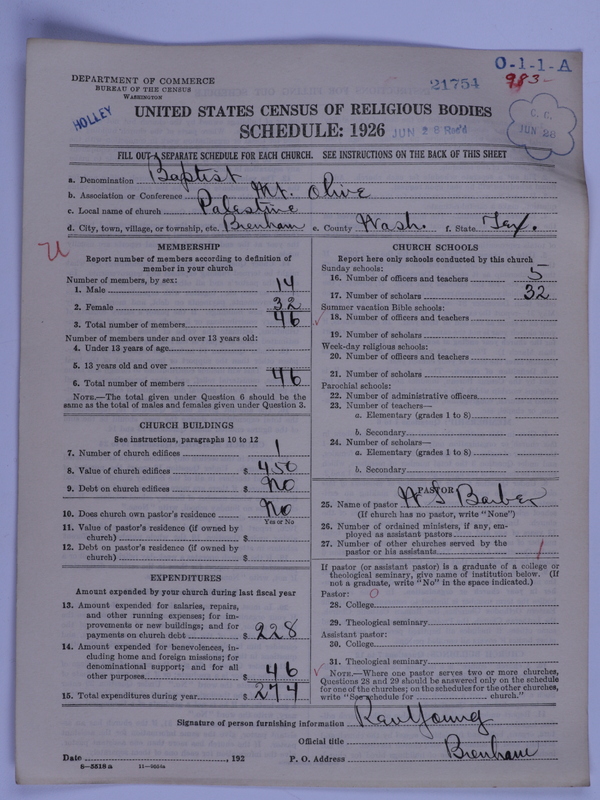 O-1-1-A
DEPARTMENT OF COMMERCE
BUREAU OF THE CENSUS
WASHINGTON
21754
983-
HOLLEY
UNITED STATES CENSUS OF RELIGIOUS BODIES
SCHEDULE: 1926
JUN 28 Rec'd
C. C.
JUN 28
FILL OUT A SEPARATE SCHEDULE FOR EACH CHURCH. SEE INSTRUCTIONS ON THE BACK OF THIS SHEET
a. Denomination Baptist
b. Association or Conference Mt. Olive
c. Local name of church Palestine
d. City, town, village, or township, etc. Brenham e. County Wash. f. State Tex.
MEMBERSHIP
Report number of members according to definition of
member in your church
Number of members, by sex:
1. Male 14
2. Female 32
3. Total number of members 46
Number of members under and over 13 years old:
4. Under 13 years of age
5. 13 years old and over
6. Total number of members 46
NOTE.—The total given under Question 6 should be the
same as the total of males and females given under Question 3.
CHURCH BUILDINGS
See instructions, paragraphs 10 to 12
7. Number of church edifices 1
8. Value of church edifices $ 450
9. Debt on church edifices $ No
10. Does church own pastor's residence No
Yes or No
11. Value of pastor's residence (if owned by
church) $
12. Debt on pastor's residence (if owned by
church) $
EXPENDITURES
Amount expended by your church during last fiscal year
13. Amount expended for salaries, repairs,
and other running expenses; for im-
provements or new buildings; and for
payments on church debt $ 228
14. Amount expended for benevolences, in-
cluding home and foreign missions; for
denominational support; and for all
other purposes $ 46
15. Total expenditures during year $ 274
CHURCH SCHOOLS
Report here only schools conducted by this church
Sunday schools:
16. Number of officers and teachers 5
17. Number of scholars 32
Summer vacation Bible schools:
18. Number of officers and teachers
19. Number of scholars
Week-day religious schools:
20. Number of officers and teachers
21. Number of scholars
Parochial schools:
22. Number of administrative officers
23. Number of teachers—
a. Elementary (grades 1 to 8)
b. Secondary
24. Number of scholars—
a. Elementary (grades 1 to 8)
b. Secondary
PASTOR
25. Name of pastor Barber
(If church has no pastor, write "None")
26. Number of ordained ministers, if any, em-
ployed as assistant pastors
27. Number of other churches served by the
pastor or his assistants 1
If pastor (or assistant pastor) is a graduate of a college or
theological seminary, give name of institution below. (If
not a graduate, write "No" in the space indicated.)
Pastor: 0
28. College
29. Theological seminary
Assistant pastor:
30. College
31. Theological seminary
NOTE.—Where one pastor serves two or more churches,
Questions 28 and 29 should be answered only on the schedule
for one of the churches; on the schedules for the other churches,
write "See schedule for church."
Signature of person furnishing information Rev Young
Official title
Date , 192 P. O. Address Brenham
8-5518 a